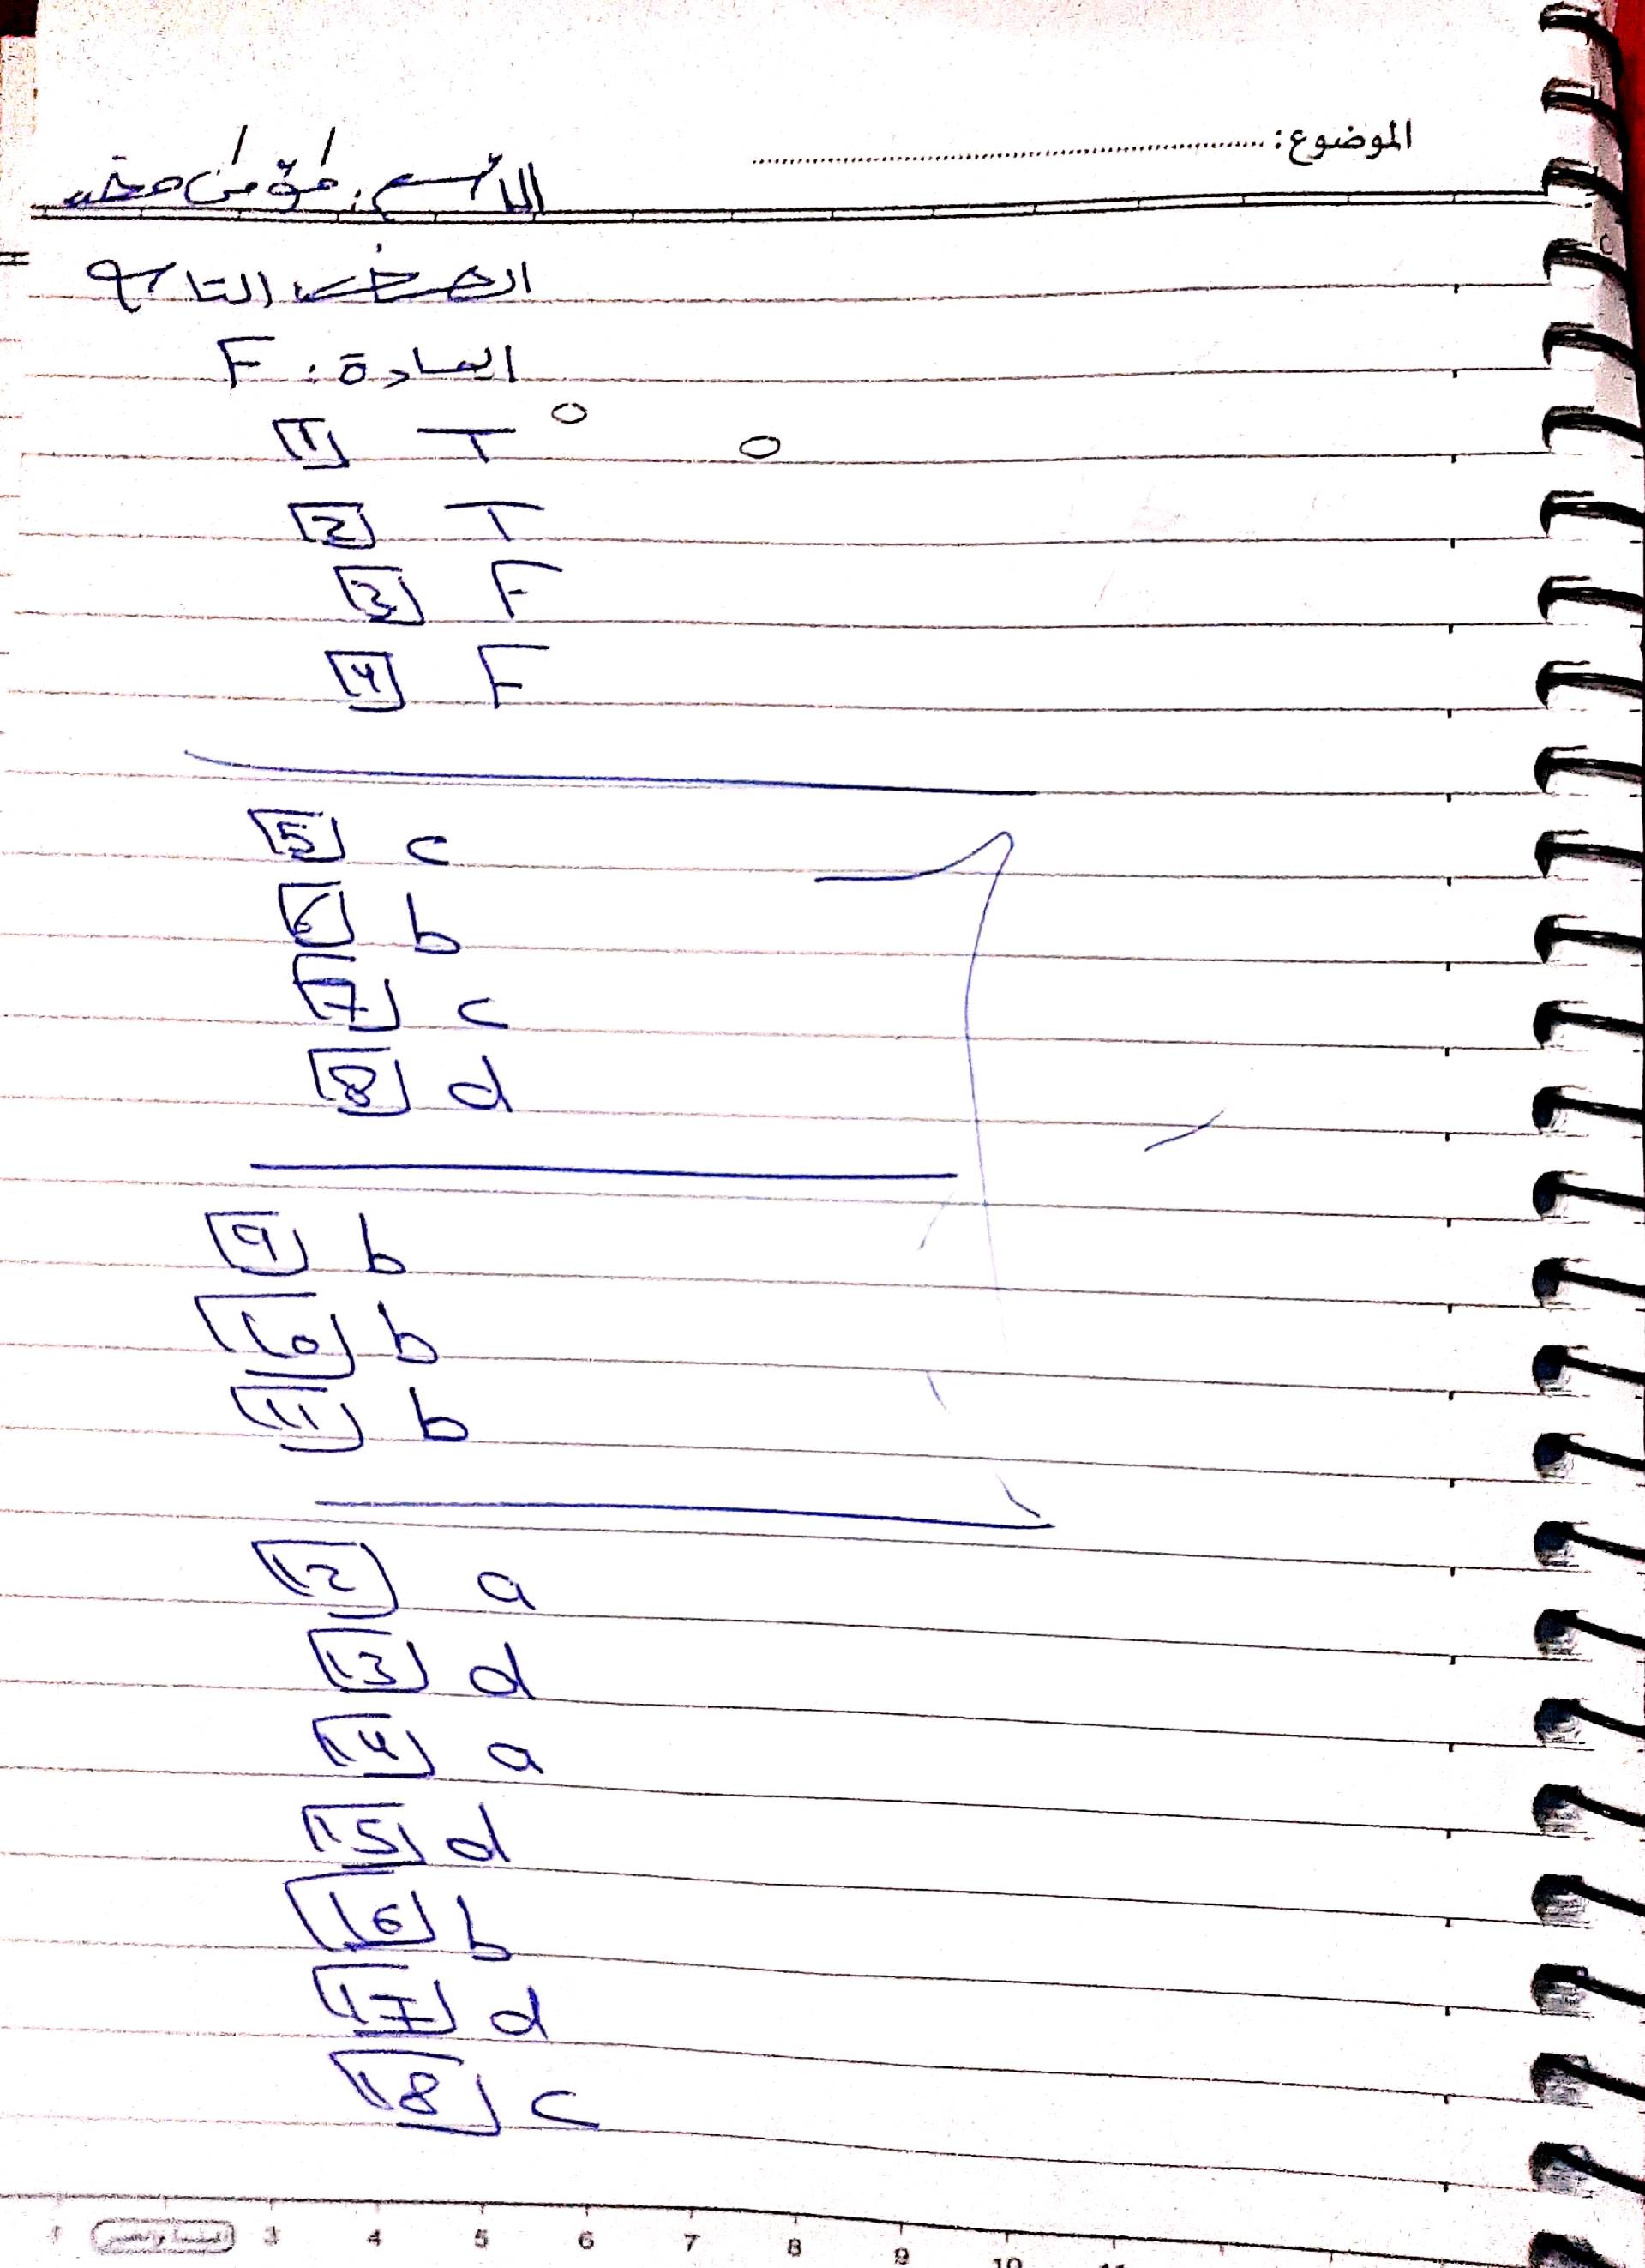 الموضوع:
الاسم: مؤمن محمد
الصف: التاسع
المادة: F
1 T
2 T
3 F
4 F
5 c
6 b
7 c
8 d
9 b
10 b
11 b
12 a
13 d
14 a
15 d
16 b
17 d
18 c
3 4 5 6 7 8 9 10 11